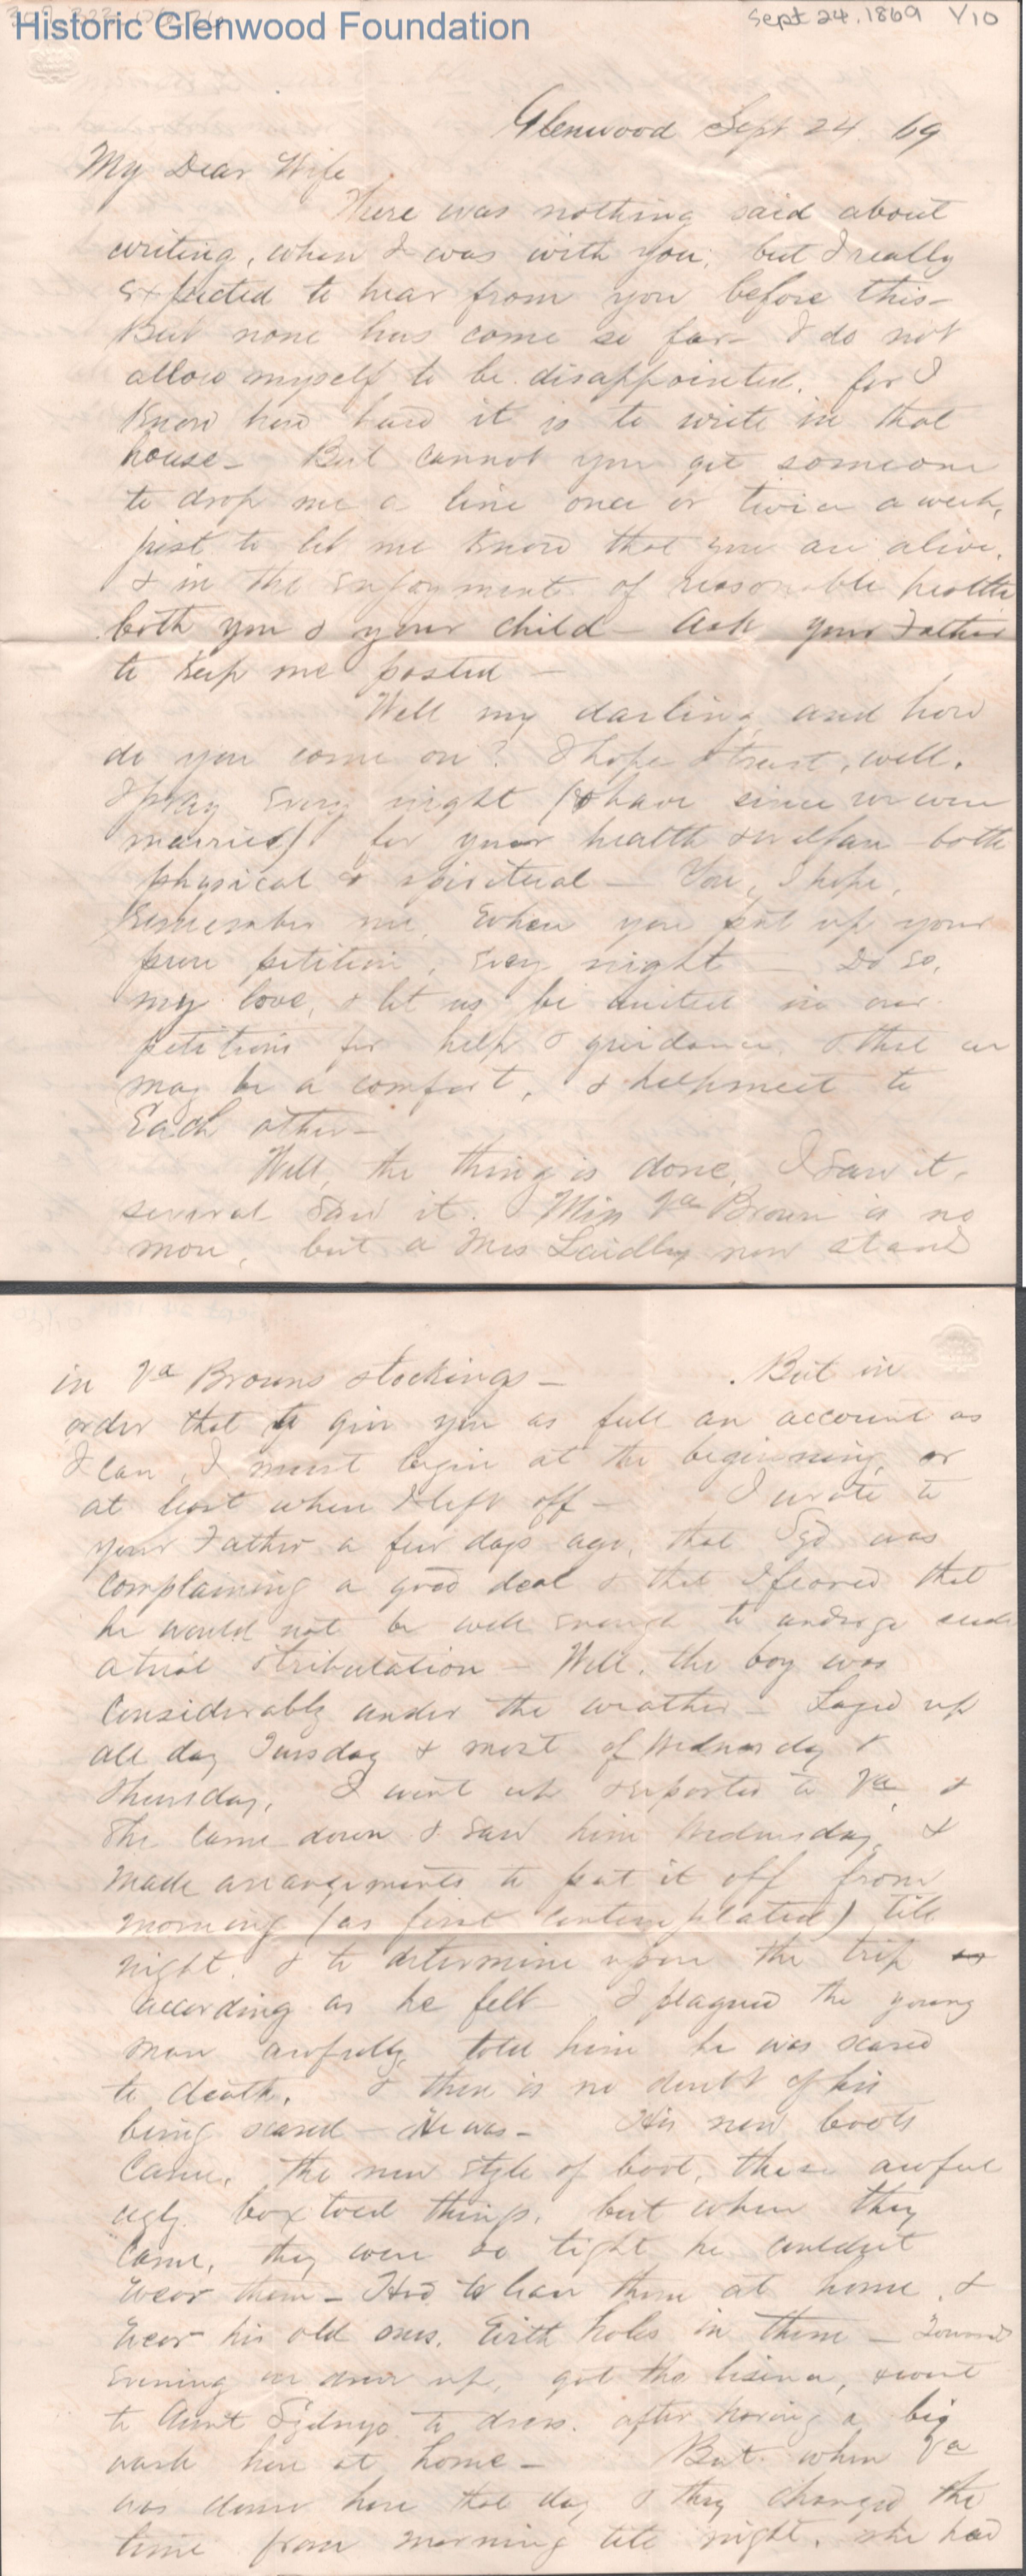 Historic Glenwood Foundation
Sept 24, 1869 V10
Glenwood Sept 24. 69
My Dear Wife
There was nothing said about
writing, when I was with you, but I really
Expected to hear from you before this-
But none has come so far- I do not
allow myself to be disappointed. for I
Know how hard it is to write in that
house- But cannot you get someone
to drop me a line once or twice a week,
just to let me Know that you are alive,
& in the Enjoyment of reasonable health
both you & your child- Ask your Father
to Keep me posted -
Well my darling and how
do you come on? I hope & trust, well.
I pray Every night (& have since we were
married) for your health & welfare - both
physical & spiritual - You, I hope,
Remember me, When you put up your
pure petition, Every night - Do so,
my love, & let us be united in our
petitions for help & guidance, & that we
may be a comfort, & helpmeet to
Each other-
Well, the thing is done, I saw it.
several saw it. Miss Va Brown is no
more, but a Mrs Laidley now stand
in Va Browns stockings - But in
order that to give you as full an account as
I can, I must begin at the beginning, or
at least where I left off - I wrote to
your Father a few days ago, that Syd was
complaining a good deal & that I feared that
he would not be well Enough to undergo such
a trial & tribulation - Well, the boy was
Considerably under the weather - Layed up
all day Tuesday & most of Wednesday &
Thursday, I went up & reported to Va &
She came down & saw him Wednesday, &
made arrangements to put it off from
morning (as first Contemplated) till
night. & to determine upon the trip
according as he felt I plagued the young
man awfully, told him he was scared
to death. & there is no doubt of his
being scared - He was - His new boots
Came, the new style of boot, these awful
ugly box toed things, but when they
Came, they were so tight he couldn't
Wear them - Had to leave them at home, &
Wear his old ones, With holes in them - Toward
Evening we drove up, got the license, & went
to Aunt Sydnys to dress. after having a big
wash here at home - But when Va
was down here that day & they changed the
time from morning till night. she had